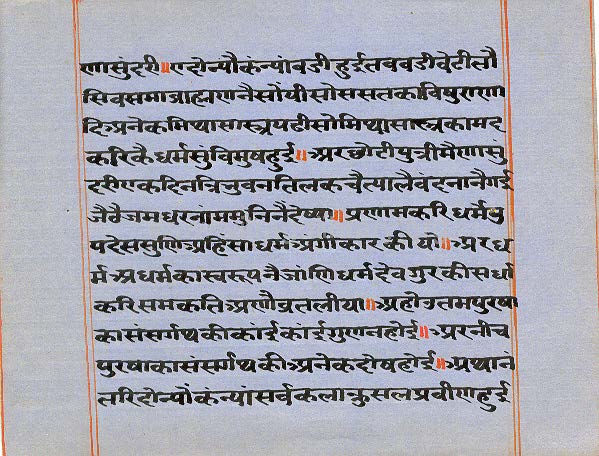 णासुंदरी॥ एदोन्यौकंन्यांवडीहुईतववडीवेटीतौ
सिवसमाब्राह्मणनैसौंपीसोससतकाविपुराणा
दिअनेकमिथ्यासास्त्रपढीसोमिथ्यासास्त्रकामद
करिकैधर्मसुंविमुषहुई॥ अरछोटीपुत्रीमैणासुं
दरीएकदिनत्रिभुवनतिलकचैत्यालैवंदनानैगई
जैठैजमधरनांममुनिनैंदेष्या॥ प्रणामकरिधर्मवु
पदेससुणिअहिंसाधर्मअंगीकारकीयो॥ अरध
र्मअधर्मकास्वरूपनैजांणिधर्मदेवगुरकीसर्धा
करिसमकतिअणौव्रतलीया॥ अहोउतमपुरषा
कासंसर्गथकीकांईकांईगुणनहोई॥ अरनीच
पुरषाकासंसर्गथकीअनेकदोषहोई॥ अथानं
तरिदोन्योंकंन्यांसर्वकलाकुसलप्रवीणहुई